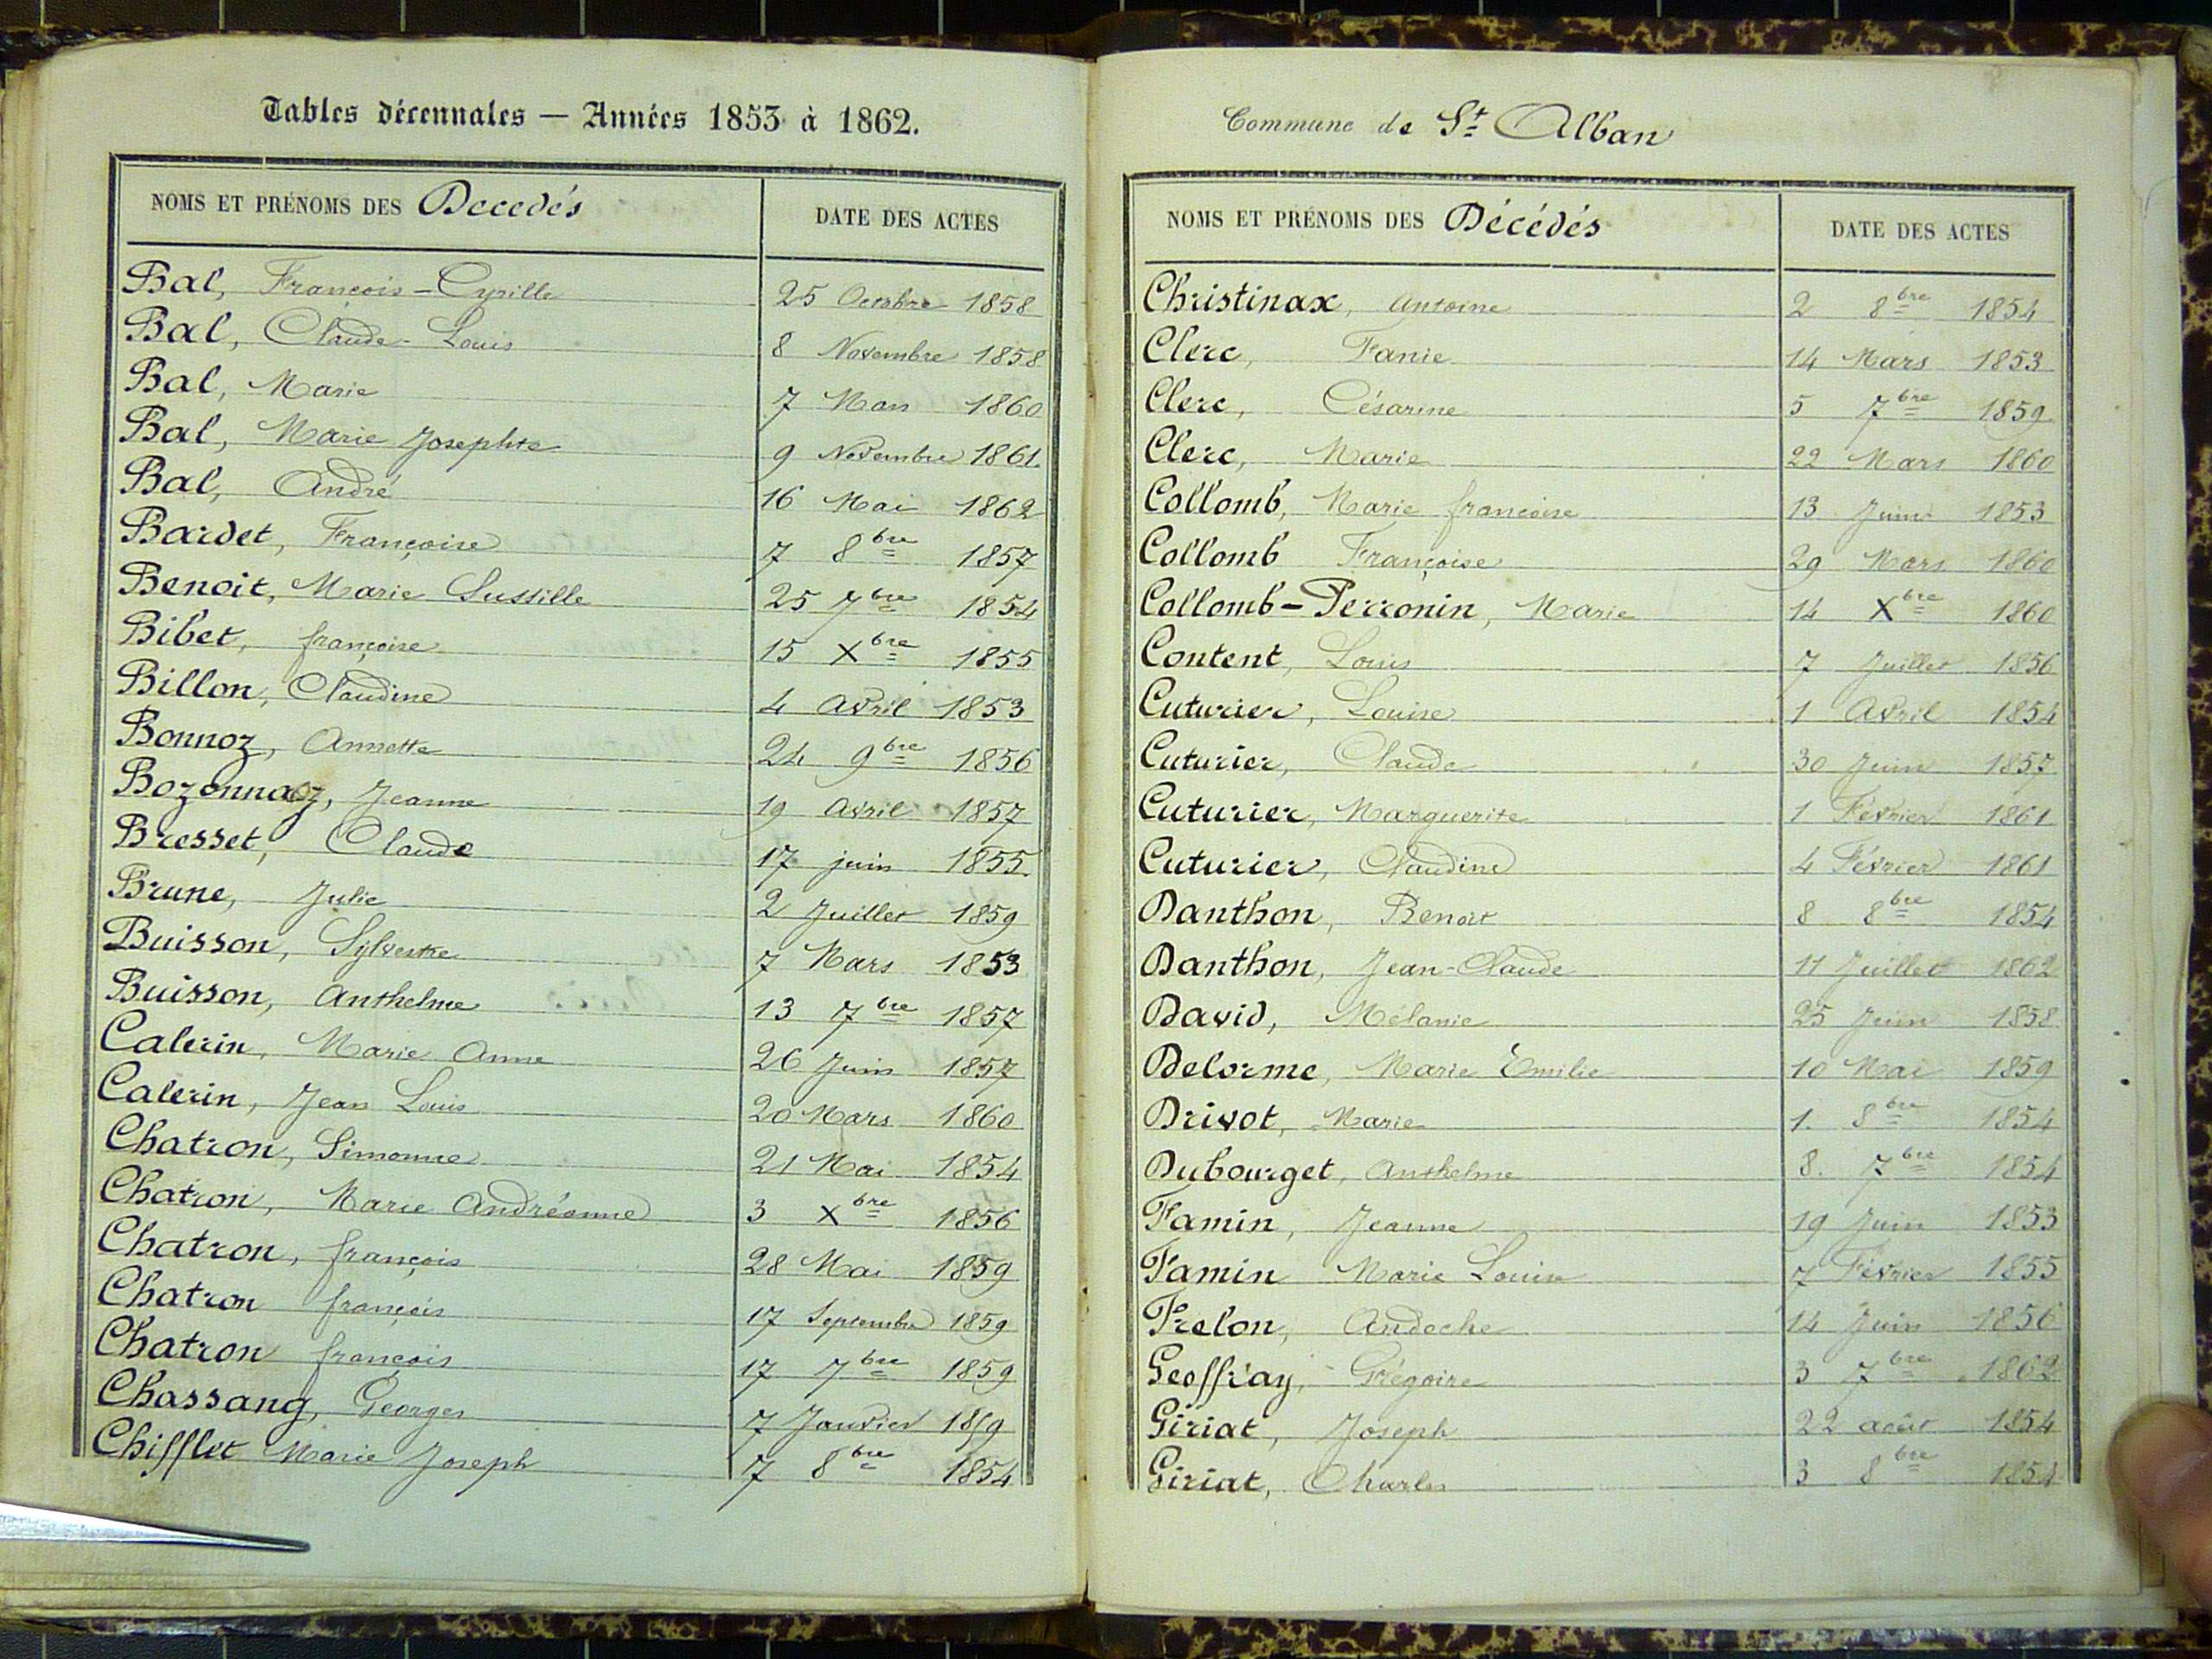 Tables décennales — Années 1853 à 1862.
NOMS ET PRÉNOMS DES Décédés DATE DES ACTES
Bal, François-Cyrille 25 Octobre 1858
Bal, Claude-Louis 8 Novembre 1858
Bal, Marie 7 Mars 1860
Bal, Marie Josephte 9 Novembre 1861.
Bal, André 16 Mai 1862
Bardet, Françoise 7 8bre 1857
Benoit, Marie Sussille 25 7bre 1854
Bibet, françoise 15 Xbre 1855
Billon, Claudine 4 Avril 1853
Bonnoz, Annette 24 9bre 1856
Bozonnaz, Jeanne 19 Avril 1857
Bresset, Claude 17 juin 1855.
Brune, Julie 2 Juillet 1859
Buisson, Sylvestre 7 Mars 1853
Buisson, Anthelme 13 7bre 1857
Calerin, Marie Anne 26 Juin 1857
Calerin, Jean Louis 20 Mars 1860
Chatron, Simonne 21 Mai 1854
Chatron, Marie Andréanne 3 Xbre 1856
Chatron, françois 28 Mai 1859
Chatron françois 17 Septembre 1859
Chatron françois 17 7bre 1859
Chassang, Georges 7 Janvier 1859
Chifflet Marie Joseph 7 8bre 1854
Commune de St Alban
NOMS ET PRÉNOMS DES Décédés DATE DES ACTES
Christinax, Antoine 2 8bre 1854
Clerc, Fanie 14 Mars 1853
Clerc, Césarine 5 7bre 1859
Clerc, Marie 22 Mars 1860
Collomb, Marie françoise 13 Juin 1853
Collomb Françoise 29 Mars 1860
Collomb-Perronin, Marie 14 Xbre 1860
Content, Louis 7 Juillet 1856
Cuturier, Louise 1 Avril 1854
Cuturier, Claude 30 Juin 1857
Cuturier, Marguerite 1 Février 1861
Cuturier, Claudine 4 Février 1861
Danthon, Benoit 8 8bre 1854
Danthon, Jean-Claude 11 Juillet 1862
David, Mélanie 25 Juin 1858
Delorme, Marie Emilie 10 Mai 1859
Drivot, Marie 1. 8bre 1854
Dubourget, Anthelme 8. 7bre 1854
Famin, Jeanne 19 Juin 1853
Famin Marie Louise 7 Février 1855
Frelon, Andoche 14 Juin 1856
Geoffray, Grégoire 3 7bre 1862
Giriat, Joseph 22 août 1854
Giriat, Charles 3 8bre 1854